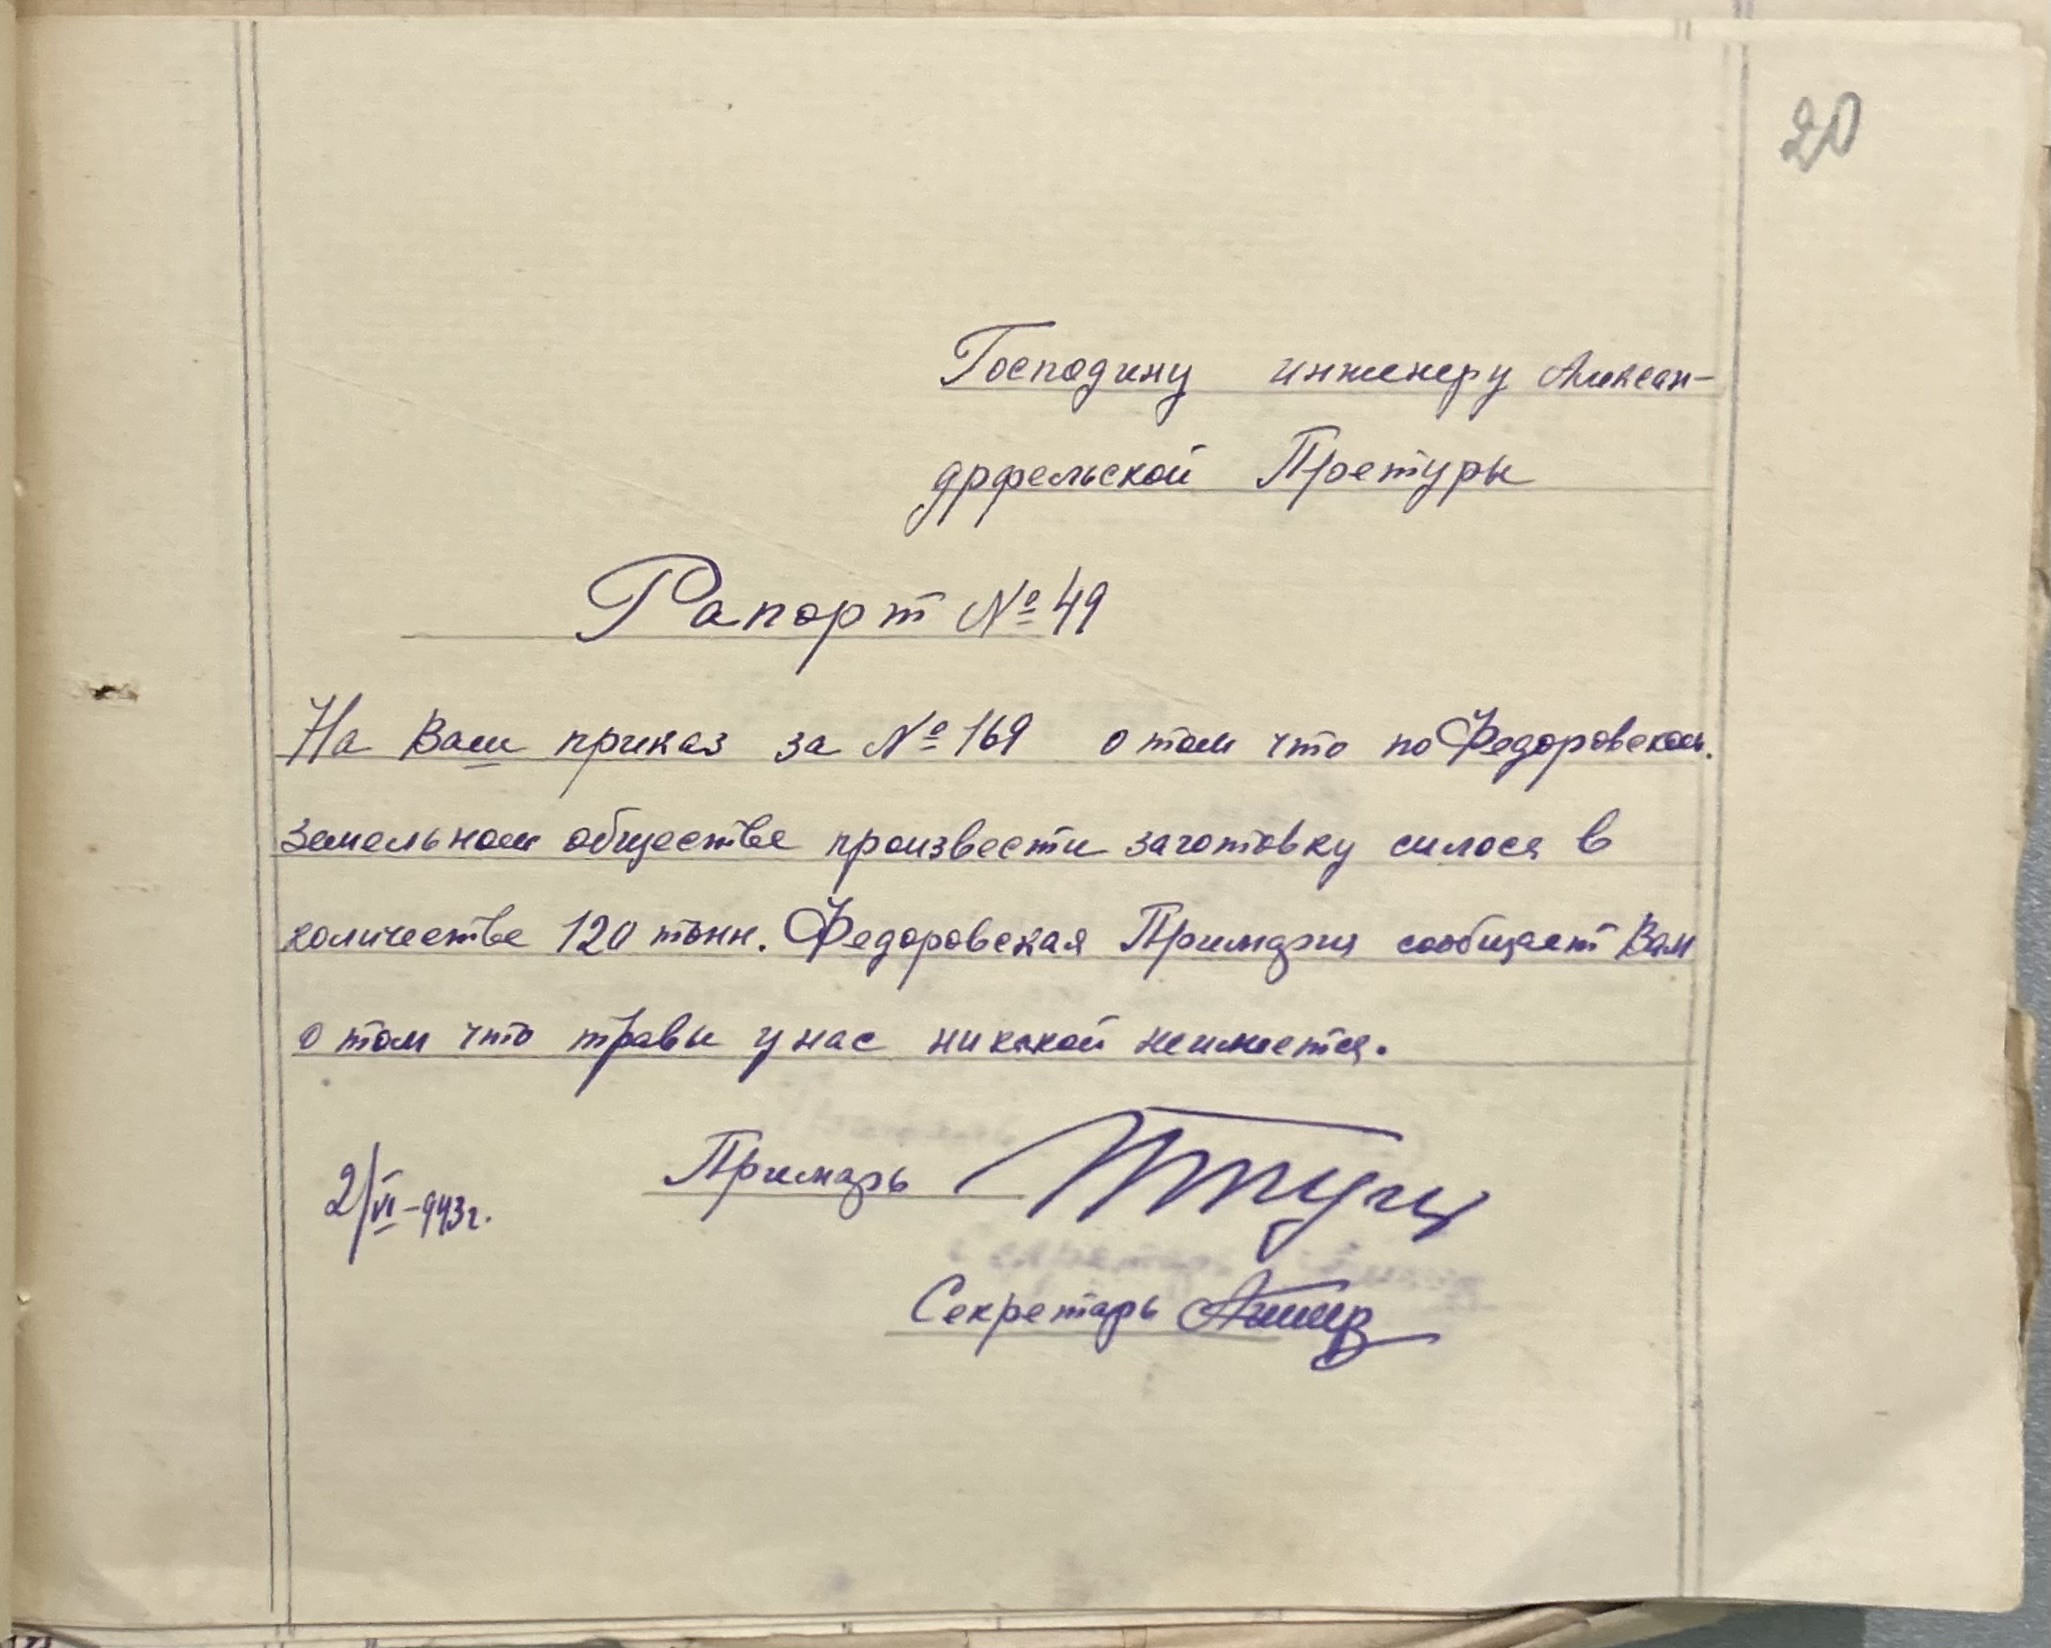 20
Господину инженеру Алексан-
дрфельской Претуры
Рапорт № 49
На Ваш приказ за № 169 о том что по Федоровском.
земельном обществе произвести заготовку силоса в
количестве 120 тонн. Федоровская Примария сообщает Вам
о том что травы у нас никакой неимеется.
2/VI-943г. Примарь
Секретарь